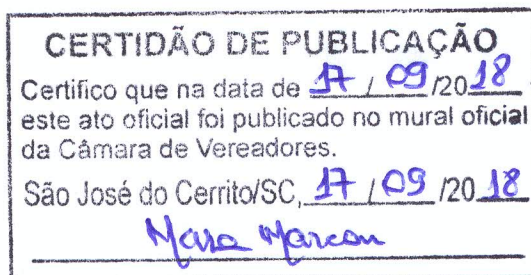 CERTIDÃO DE PUBLICAÇÃO
Certifico que na data de 17 / 09 /2018
este ato oficial foi publicado no mural oficial
da Câmara de Vereadores.
São José do Cerrito/SC, 17 / 09 /20 18
Mara Marcon